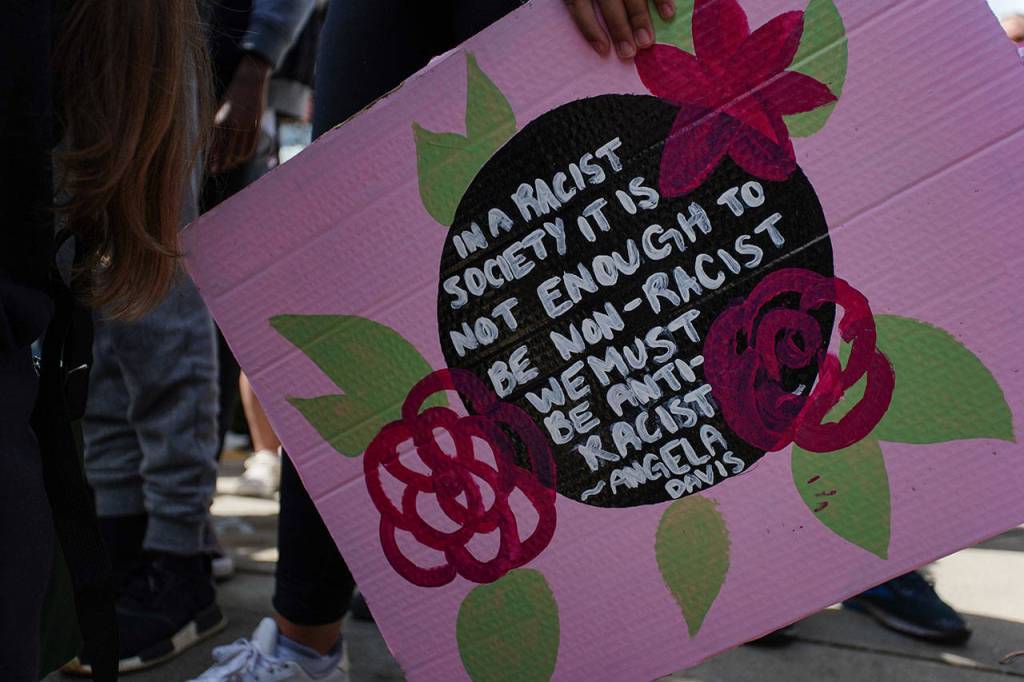 IN A RACIST
SOCIETY IT IS
NOT ENOUGH TO
BE NON-RACIST
WE MUST
BE ANTI-
RACIST
~ANGELA
DAVIS